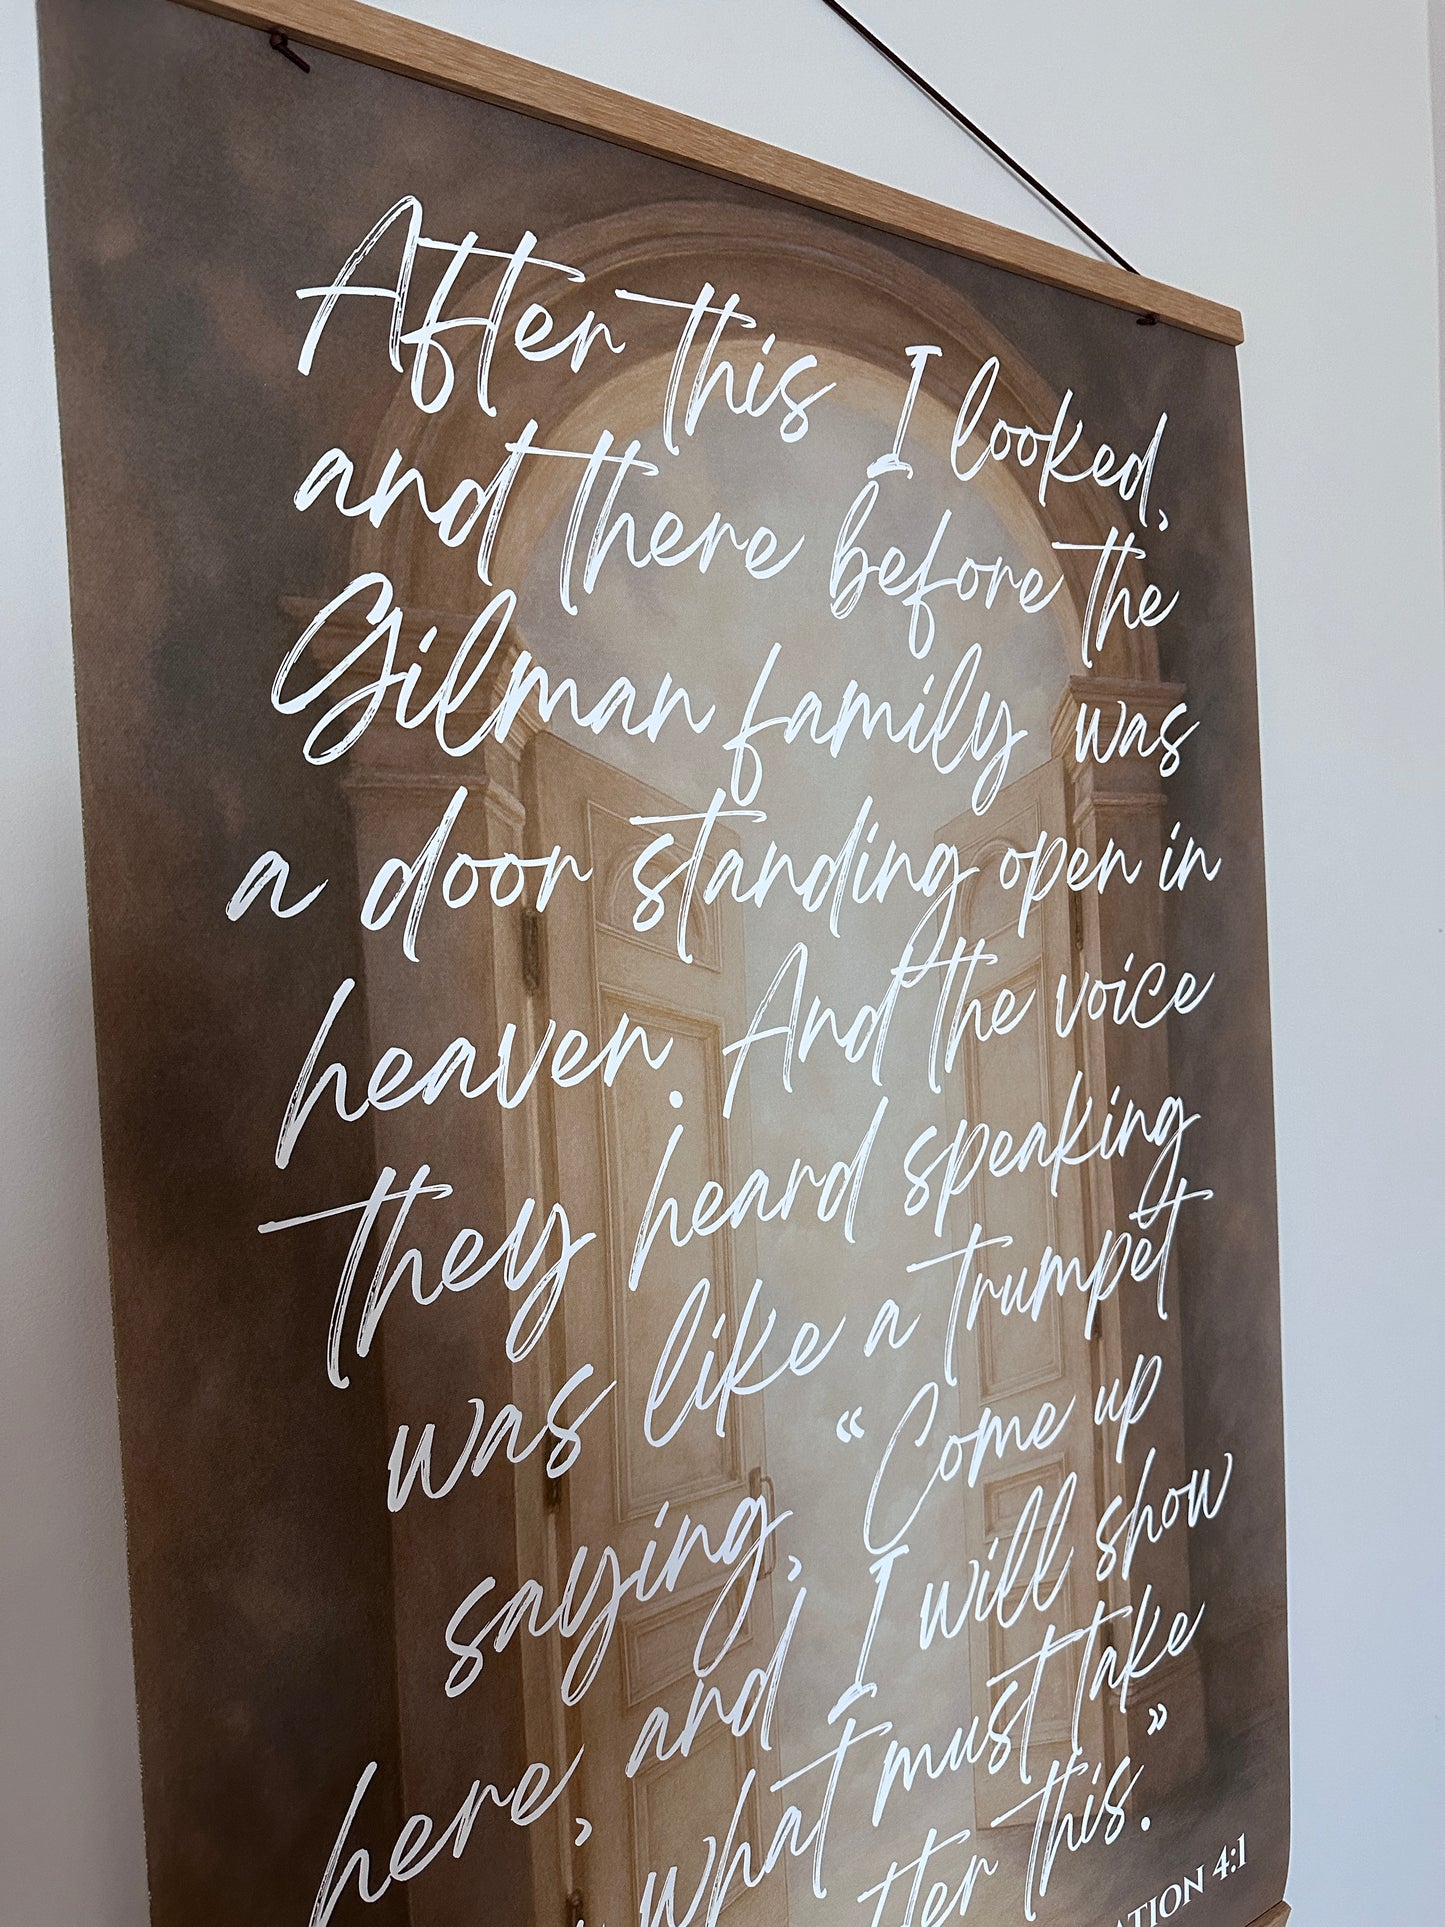 After this I looked,
and there before the
Gilman family was
a door standing open in
heaven. And the voice
they heard speaking
was like a trumpet
saying, “Come up
here, and I will show
what must take
this.”
4:1